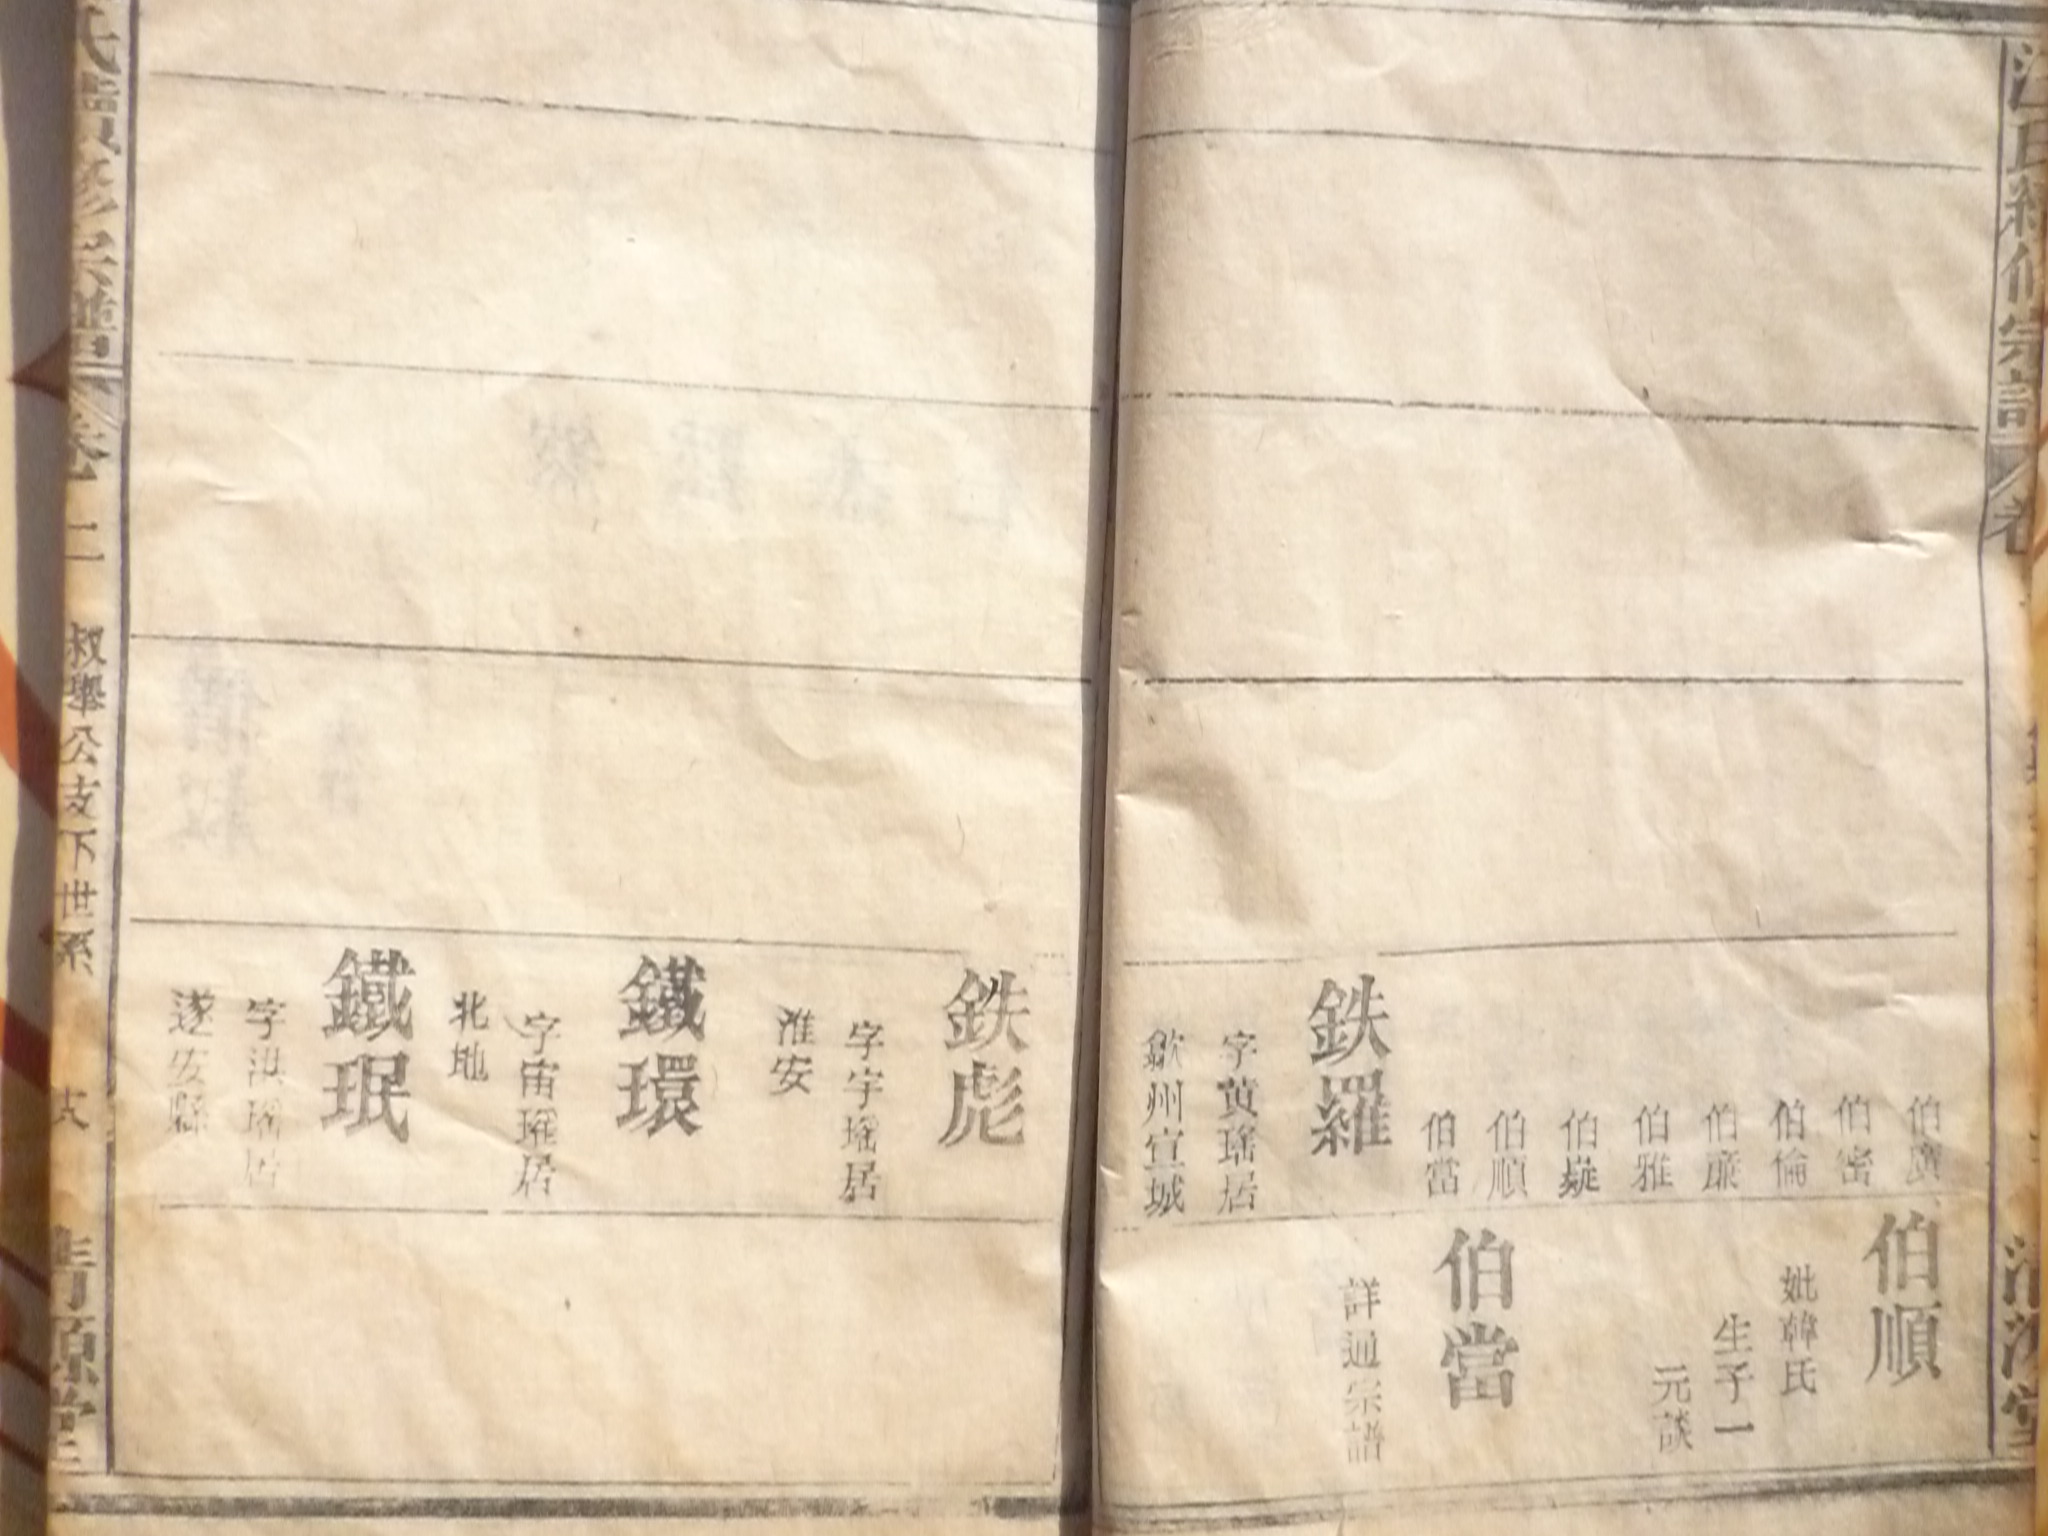 汪氏續修宗譜 卷
清源堂
伯廣
伯密
伯倫
伯廉
伯雅
伯嶷
伯順
伯當
伯順
妣韓氏
生子一
元談
伯當
詳通宗譜
鉄羅
字黄瑤居
歙州宣城
鉄彪
字宇瑤居
淮安
鐵環
字宙瑤居
北地
鐵珉
字洪瑤居
遂安縣
氏續修宗譜 卷二 叔舉公支下世系 十八 清源堂